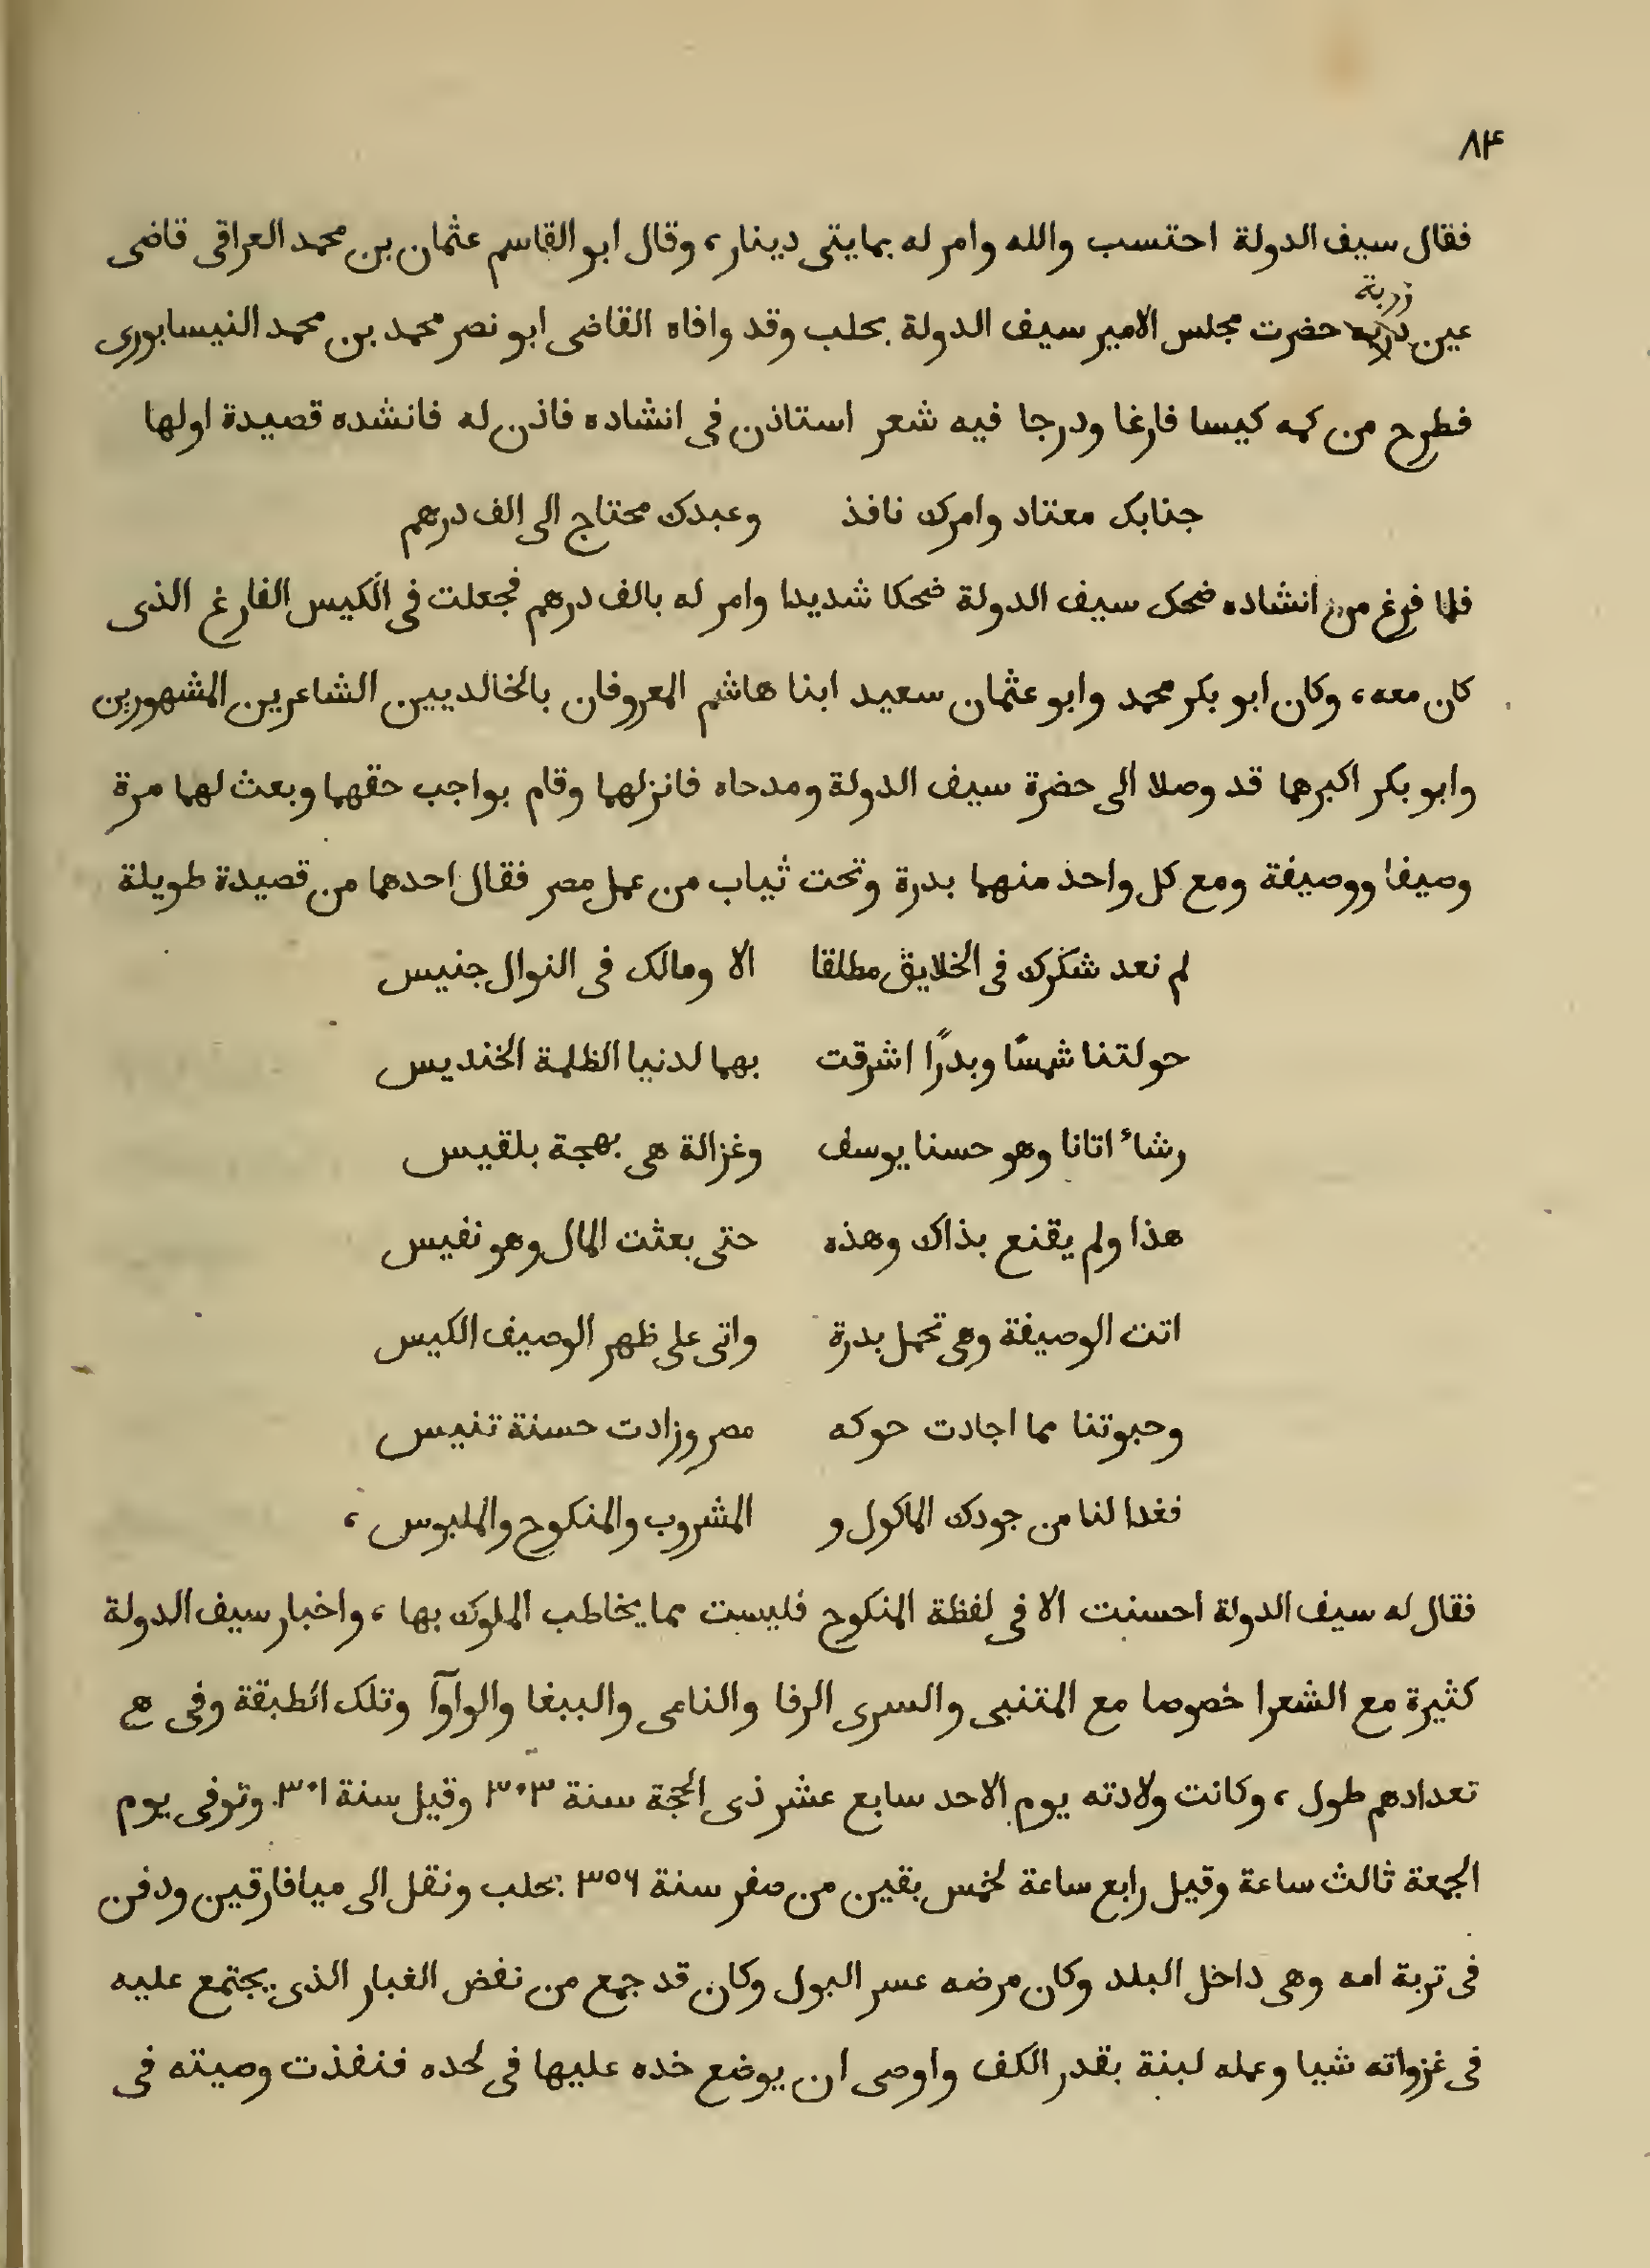 ٨٤
فقال سيف الدولة احتسب والله وامر له بمايتى دينار، وقال ابو القاسم عثمان بن محمد العراقى قاضى
زربة
عين حضرت مجلس الامير سيف الدولة بحلب وقد وافاه القاضى ابو نصر محمد بن محمد النيسابورى
فطرح من كمه كيسا فارغا ودرجا فيه شعر استاذن فى انشاده فاذن له فانشده قصيدة اولها
جنابك معتاد وامرك نافذ وعبدك محتاج الى الف درهم
فلما فرغ من انشاده ضحك سيف الدولة ضحكا شديدا وامر له بالف درهم فجعلت فى الكيس الفارغ الذى
كان معه، وكان ابو بكر محمد وابو عثمان سعيد ابنا هاشم المعروفان بالخالديين الشاعرين المشهورين
وابو بكر اكبرهما قد وصلا الى حضرة سيف الدولة ومدحاه فانزلهما وقام بواجب حقهما وبعث لهما مرة
وصيفا ووصيفة ومع كل واحد منهما بدرة وتحت ثياب من عمل مصر فقال احدهما من قصيدة طويلة
لم نعد شكرك فى الخلايق مطلقا الا ومالك فى النوال جنيس
حولتنا شمسًا وبدرًا اشرقت بهما لدنيا الظلمة الخنديس
رشاء اتانا وهو حسنا يوسف وغزالة هى بهجة بلقيس
هذا ولم يقنع بذاك وهذه حتى بعثت المال وهو نفيس
اتت الوصيفة وهى تحمل بدرة واتى على ظهر الوصيف الكيس
وحبوتنا مما اجادت حوكه مصر وزادت حسنة تنيس
فغدا لنا من جودك الماكول و المشروب والمنكوح والملبوس،
فقال له سيف الدولة احسنت الا فى لفظة المنكوح فليست مما يخاطب الملوك بها، واخبار سيف الدولة
كثيرة مع الشعرا خصوصا مع المتنبى والسرى الرفا والنامى والببغا والواوآ وتلك الطبقة وفى
تعدادهم طول، وكانت ولادته يوم الاحد سابع عشر ذى الحجة سنة ٣٠٣ وقيل سنة ٣٠١ وتوفى يوم
الجمعة ثالث ساعة وقيل رابع ساعة لخمس بقين من صفر سنة ٣٥٦ بحلب ونقل الى ميافارقين ودفن
فى تربة امه وهى داخل البلد وكان مرضه عسر البول وكان قد جمع من نفض الغبار الذى يجتمع عليه
فى غزواته شيا وعمله لبنة بقدر الكف واوصى ان يوضع خده عليها فى لحده فنفذت وصيته فى